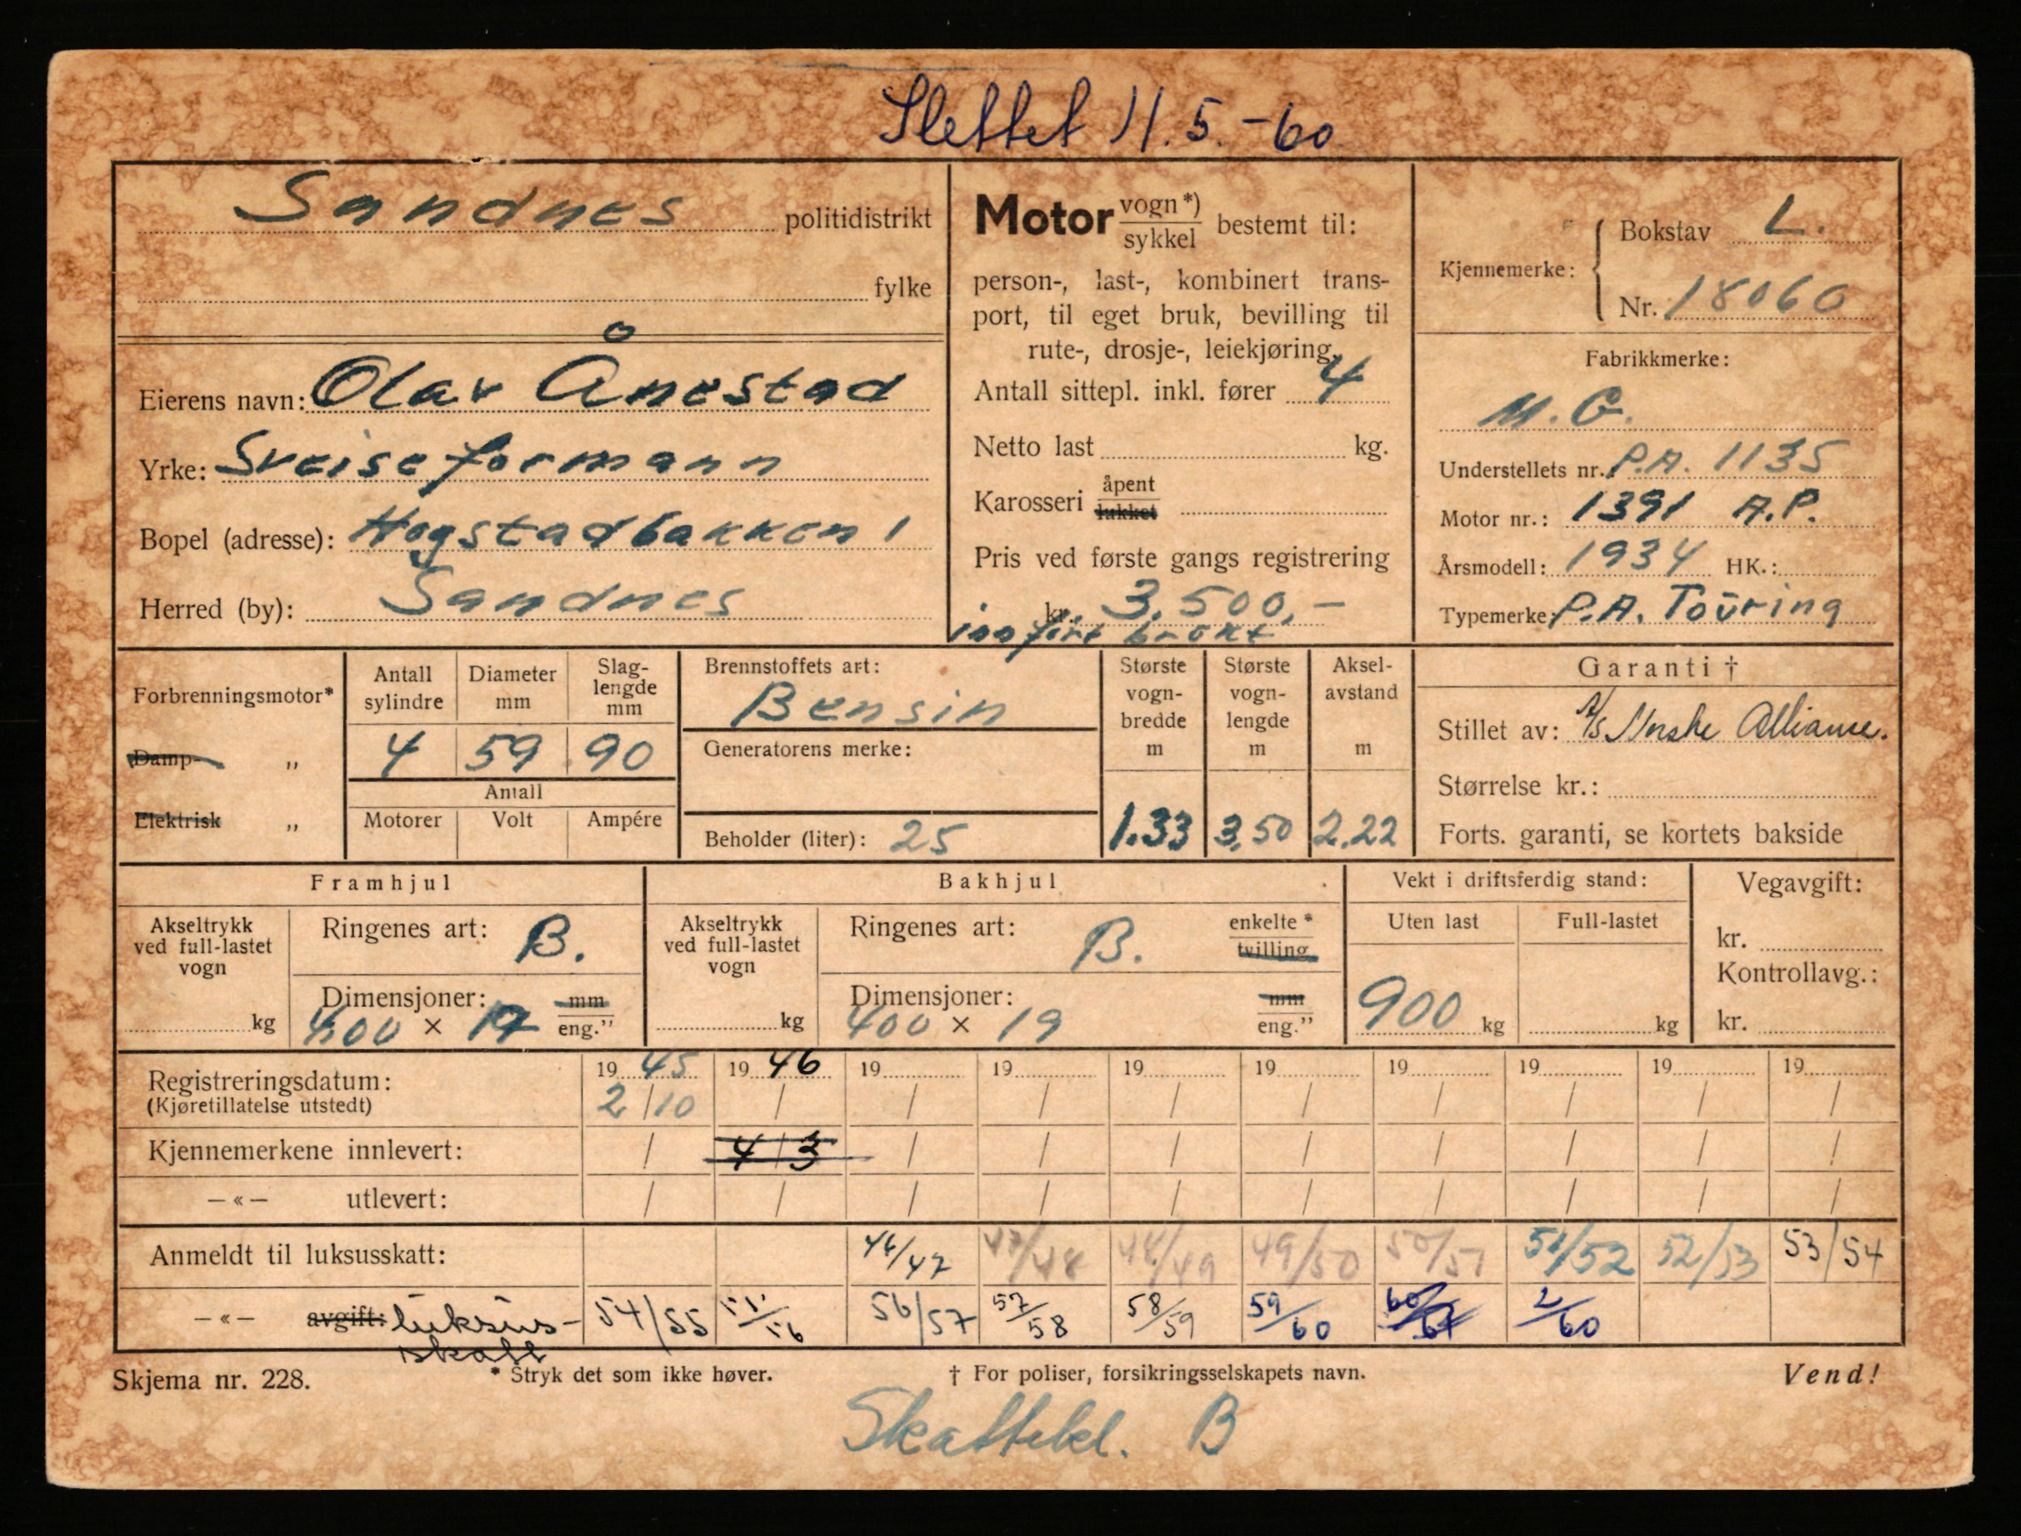 Slettet 11.5.-60
Sandnes politidistrikt
fylke
Eierens navn: Olav Ånestad
Yrke: Sveiseformann
Bopel (adresse): Hogstadbakken 1
Herred (by): Sandnes
Motor vogn*) / sykkel bestemt til:
person-, last-, kombinert trans-
port, til eget bruk, bevilling til
rute-, drosje-, leiekjøring.
Antall sittepl. inkl. fører 4
Netto last kg.
Karosseri åpent / lukket
Pris ved første gangs registrering
kr. 3.500,-
innført brukt
Kjennemerke: Bokstav L.
Nr. 18060
Fabrikkmerke:
M. G.
Understellets nr. P.A. 1135
Motor nr.: 1391 A.P.
Årsmodell: 1934 HK.:
Typemerke: P.A. Touring
Forbrenningsmotor*
Damp- „
Elektrisk „
Antall sylindre
4
Diameter mm
59
Slag-
lengde
mm
90
Antall
Motorer Volt Ampére
Brennstoffets art:
Bensin
Generatorens merke:
Beholder (liter): 25
Største
vogn-
bredde
m
1.33
Største
vogn-
lengde
m
3,50
Aksel-
avstand
m
2.22
Garanti †
Stillet av: A/S Norske Alliance.
Størrelse kr.:
Forts. garanti, se kortets bakside
Framhjul
Akseltrykk
ved full-lastet
vogn
kg
Ringenes art: B.
Dimensjoner: mm
400 × 19 eng.”
Bakhjul
Akseltrykk
ved full-lastet
vogn
kg
Ringenes art: B. enkelte * / tvilling
Dimensjoner: mm
400 × 19 eng.”
Vekt i driftsferdig stand:
Uten last Full-lastet
900 kg kg
Vegavgift:
kr.
Kontrollavg.:
kr.
Registreringsdatum: 19 45 19 46 19 19 19 19 19 19 19 19
(Kjøretillatelse utstedt) 2/10 / / / / / / / / /
Kjennemerkene innlevert: / 4/3 / / / / / / / /
—«— utlevert: / / / / / / / / / /
Anmeldt til luksusskatt: 46/47 47/48 48/49 49/50 50/51 51/52 52/53 53/54
—«— avgift: luksus-
skatt 54/55 55/56 56/57 57/58 58/59 59/60 60/61 2/60
Skjema nr. 228. * Stryk det som ikke høver. † For poliser, forsikringsselskapets navn. Vend!
Skattekl. B